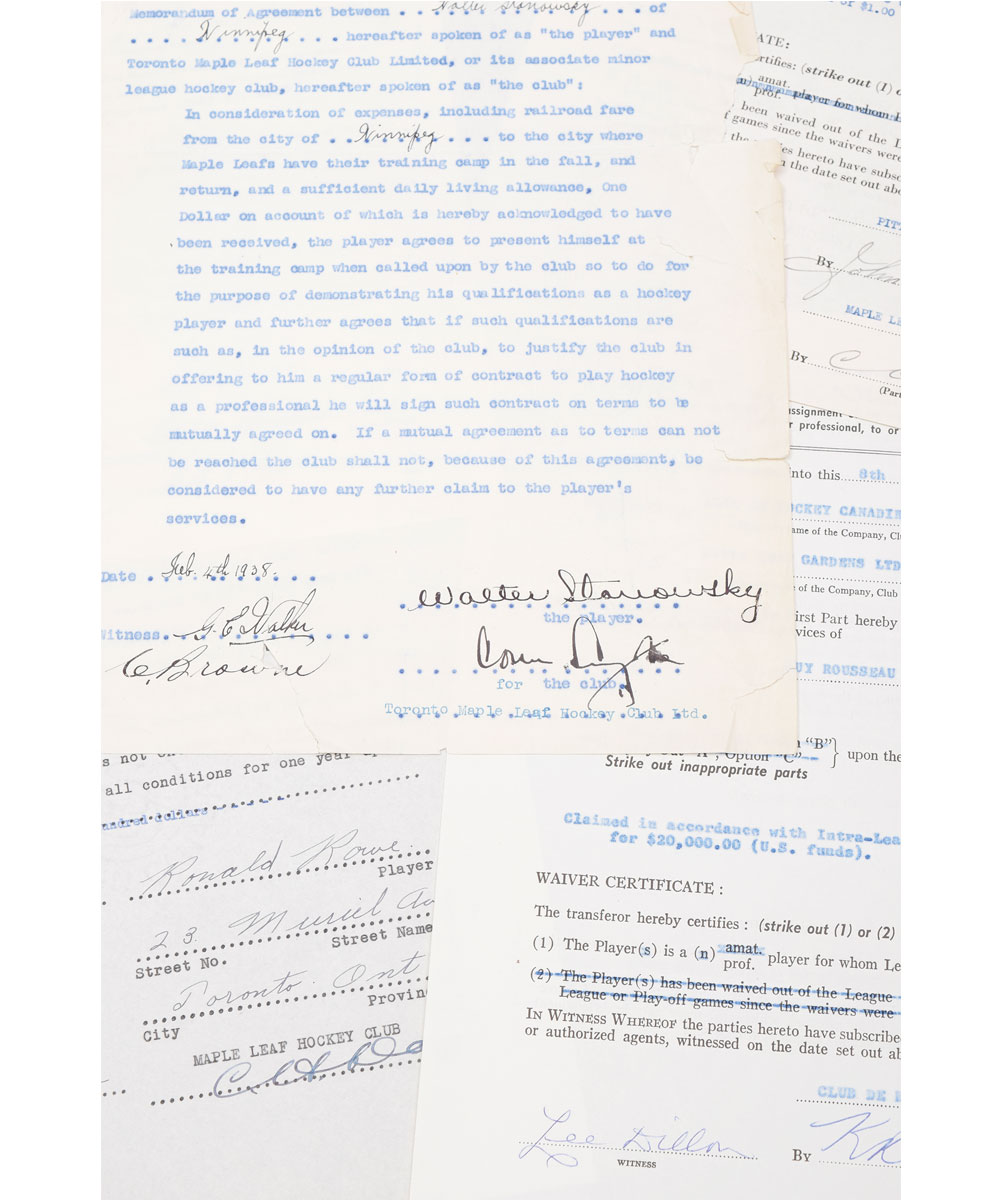 Memorandum of Agreement between . . Walter Stanowsky . . . of
. . . . Winnipeg . . . . hereafter spoken of as "the player" and
Toronto Maple Leaf Hockey Club Limited, or its associate minor
league hockey club, hereafter spoken of as "the club":
In consideration of expenses, including railroad fare
from the city of . . Winnipeg . . . to the city where
Maple Leafs have their training camp in the fall, and
return, and a sufficient daily living allowance, One
Dollar on account of which is hereby acknowledged to have
been received, the player agrees to present himself at
the training camp when called upon by the club so to do for
the purpose of demonstrating his qualifications as a hockey
player and further agrees that if such qualifications are
such as, in the opinion of the club, to justify the club in
offering to him a regular form of contract to play hockey
as a professional he will sign such contract on terms to be
mutually agreed on. If a mutual agreement as to terms can not
be reached the club shall not, because of this agreement, be
considered to have any further claim to the player's
services.
Date . Feb. 4th 1938. . .
Walter Stanowsky
the player.
Witness. . G. E. Walker . . .
C. Browne
for the club.
Toronto Maple Leaf Hockey Club Ltd.
of $1.00
ATE:
rtifies: (strike out (1) o
(n) amat.
prof. player for whom L
been waived out of the L
f games since the waivers were
the ies hereto have subsc
n the date set out abo
PIT
By John
MAPLE LE
By C
(Par
ssignment
r professional, to or
nto this 8th
OCKEY CANADIE
ame of the Company, Cl
GARDENS LTD
of the Company, Club
irst Part hereby
vices of
UY ROUSSEAU
"B"} upon the
Option "C"
Strike out inappropriate parts
Claimed in accordance with Intra-Lea
for $20,000.00 (U.S. funds).
WAIVER CERTIFICATE :
The transferor hereby certifies : (strike out (1) or (2)
(1) The Player(s) is a (n) amat.
prof. player for whom Le
(2) The Player(s) has been waived out of the League
League or Play-off games since the waivers were
IN WITNESS WHEREOF the parties hereto have subscribe
or authorized agents, witnessed on the date set out ab
CLUB DE
Lee Dillon
WITNESS
By
s not
all conditions for one year
undred dollars
Ronald Rowe.
Player
23. Muriel Av
Street No. Street Name
Toronto. Ont
City Provin
MAPLE LEAF HOCKEY CLUB